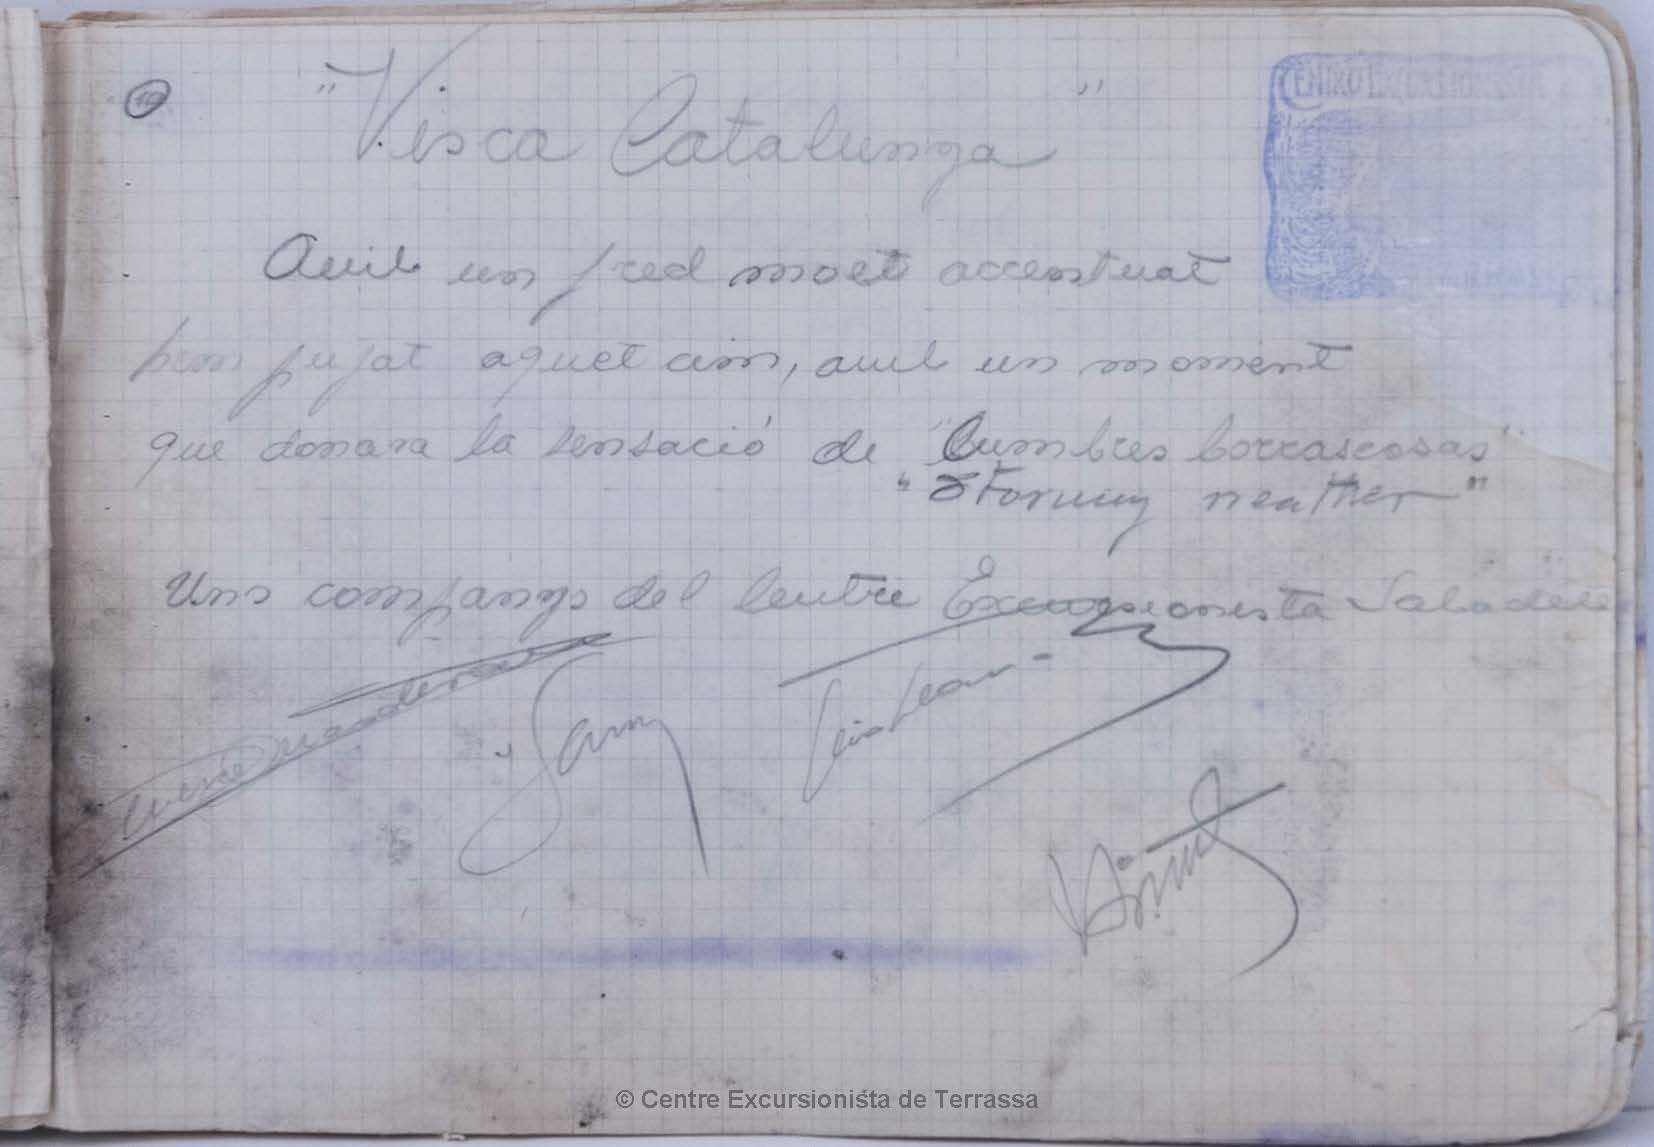 10
"Visca Catalunya"
CENTRO EXCURSIONISTA
Amb un fred molt accentuat
hem pujat aquet cim, amb un moment
que donava la sensació de "Cumbres borrascosas"
"Stormy weather"
Uns companys del Centre Excursionista Sabadell
© Centre Excursionista de Terrassa